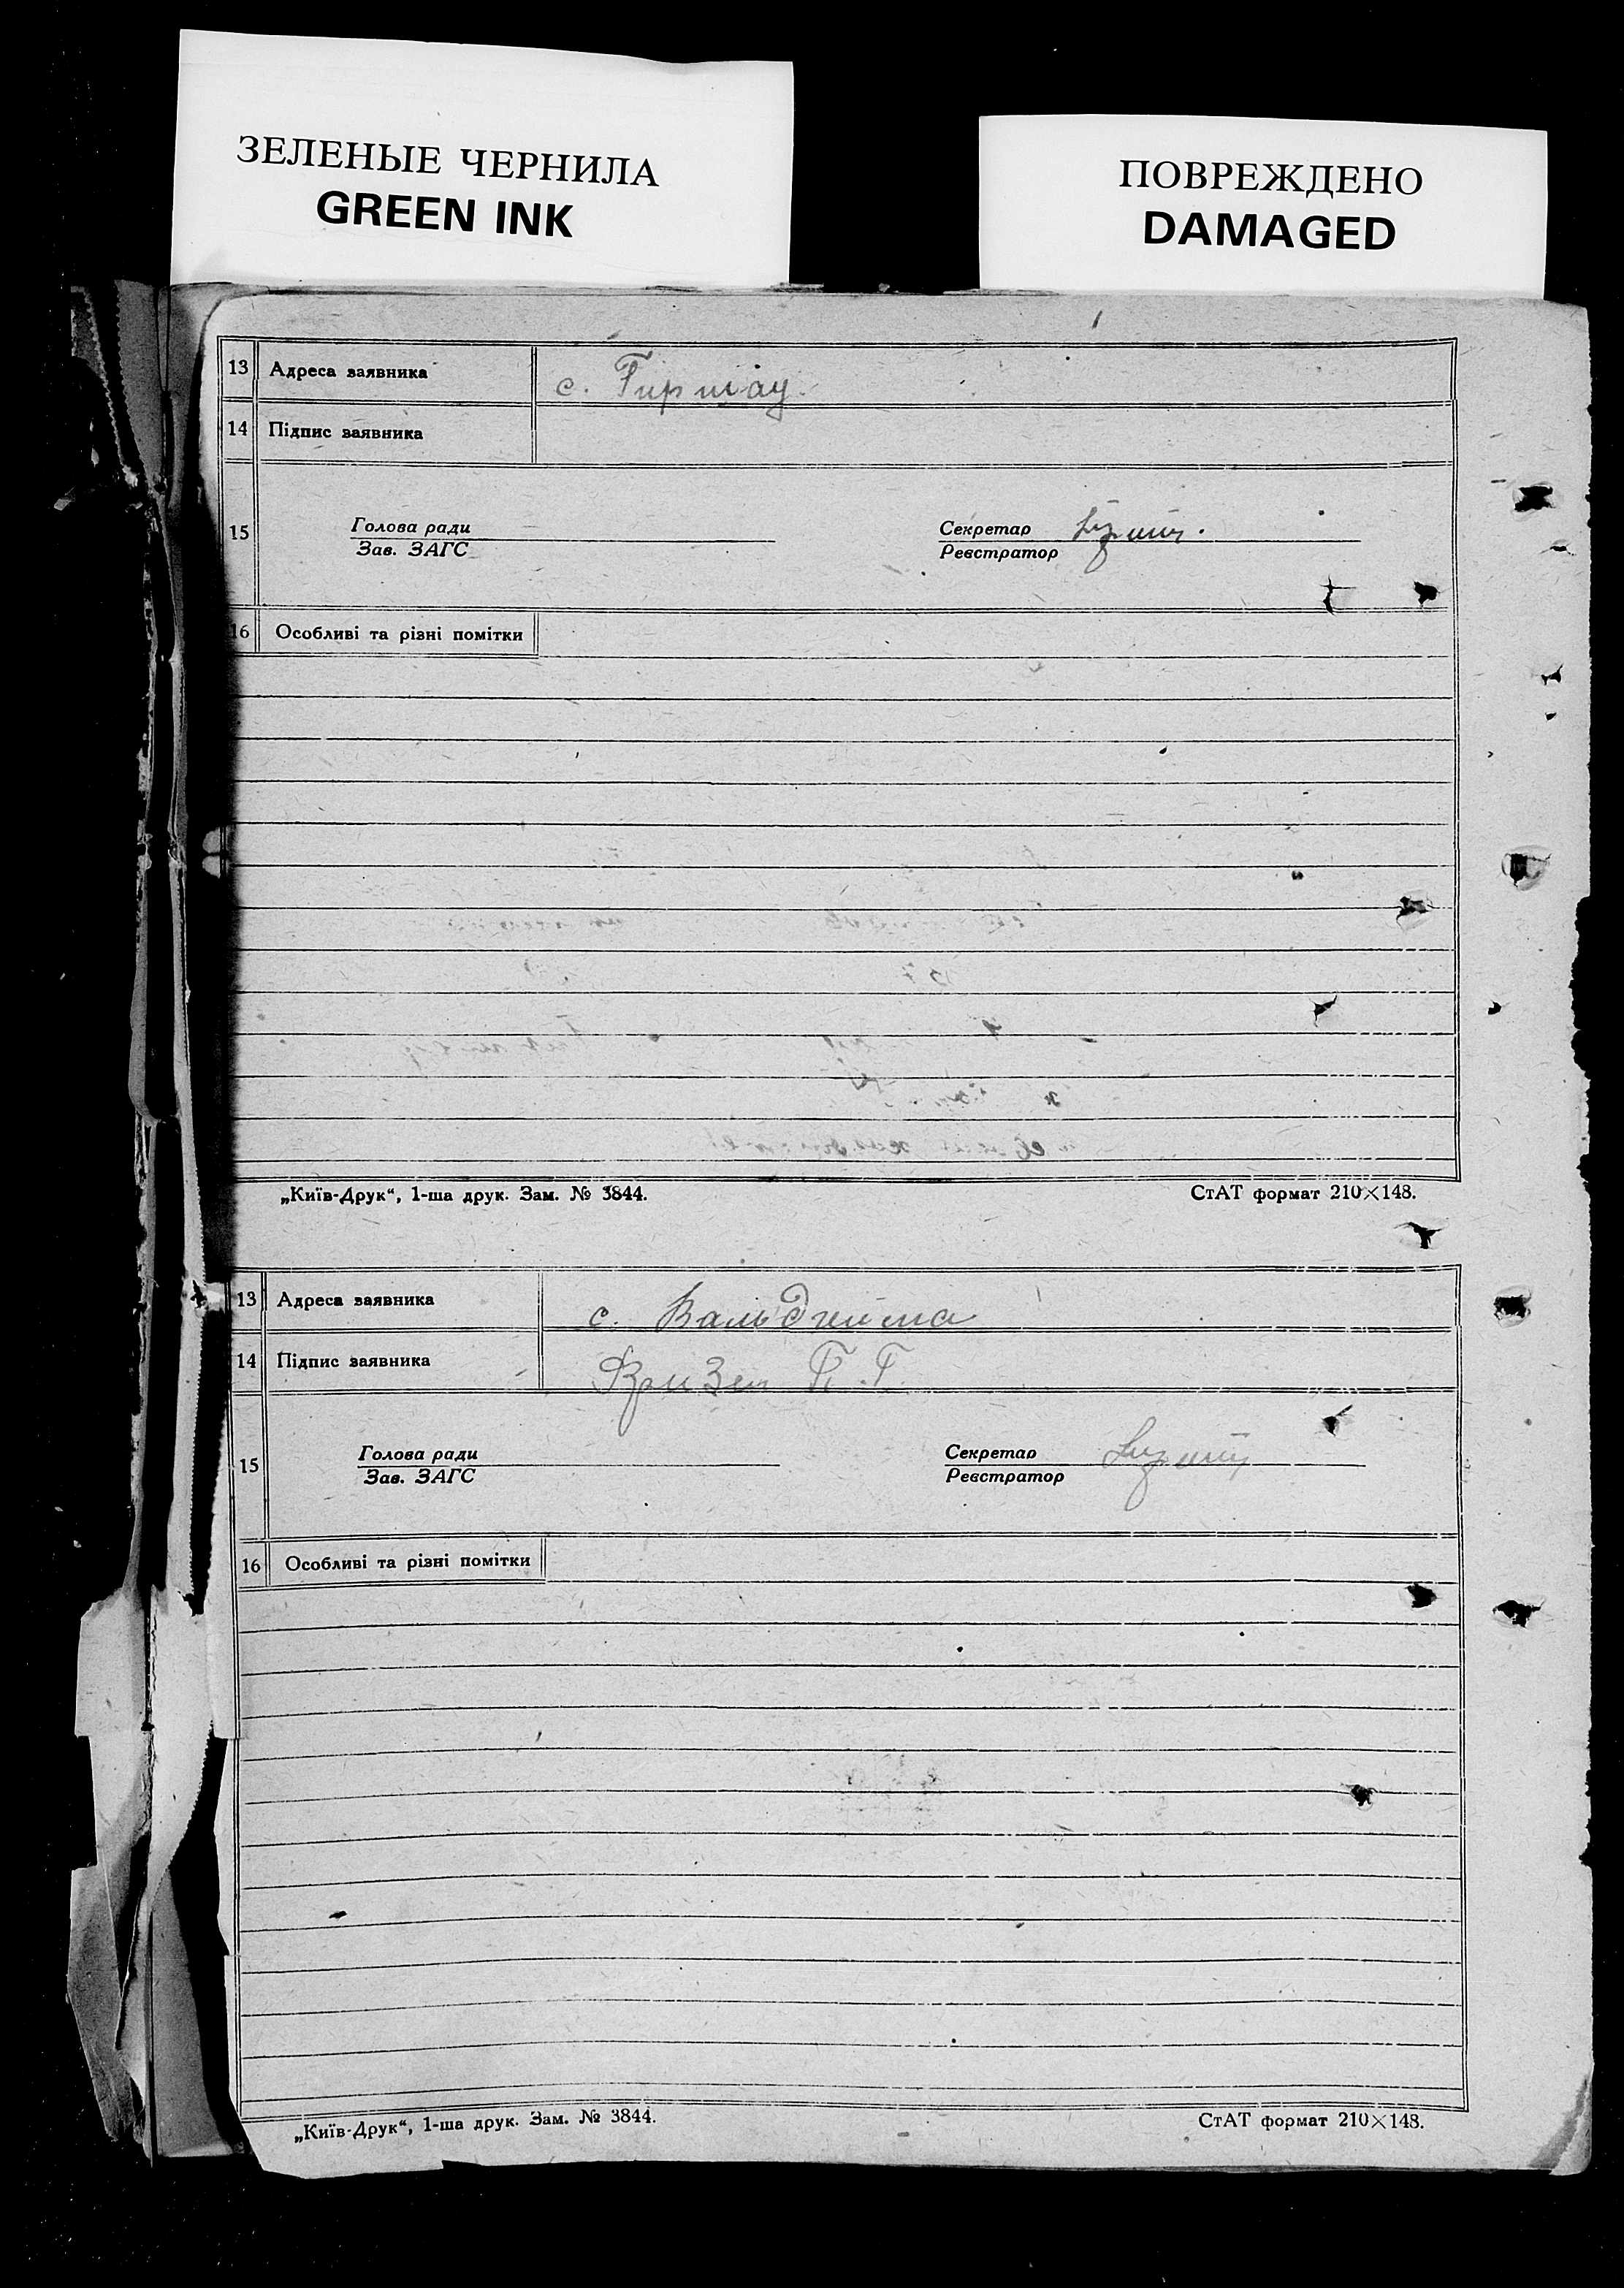 ЗЕЛЕНЫЕ ЧЕРНИЛА
GREEN INK
ПОВРЕЖДЕНО
DAMAGED
13 Адреса заявника с. Гиршау.
14 Підпис заявника
15 Голова ради Секретар
Зав. ЗАГС Реєстратор
16 Особливі та різні помітки
„Київ-Друк“, 1-ша друк. Зам. № 3844. СтАТ формат 210×148.
13 Адреса заявника с. Вальдгейма
14 Підпис заявника Фризен П. Г.
15 Голова ради Секретар
Зав. ЗАГС Реєстратор
16 Особливі та різні помітки
„Київ-Друк“, 1-ша друк. Зам. № 3844. СтАТ формат 210×148.